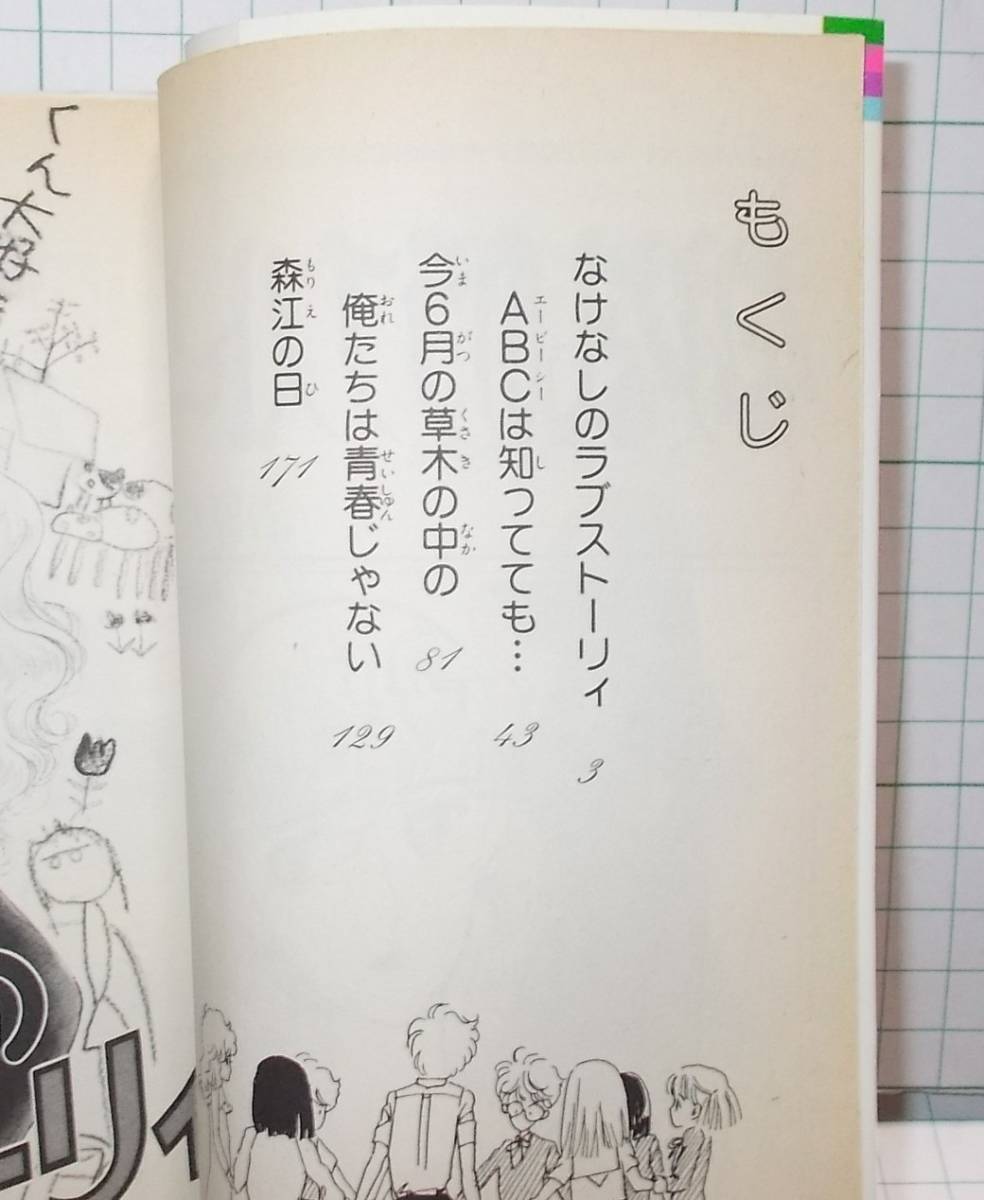 もくじ
なけなしのラブストーリィ 3
ABCは知ってても… 43
エービーシー し
今6月の草木の中の 81
いま がつ くさ き なか
俺たちは青春じゃない 129
おれ せいしゅん
森江の日 171
もり え ひ
くん
大好
の
リィ